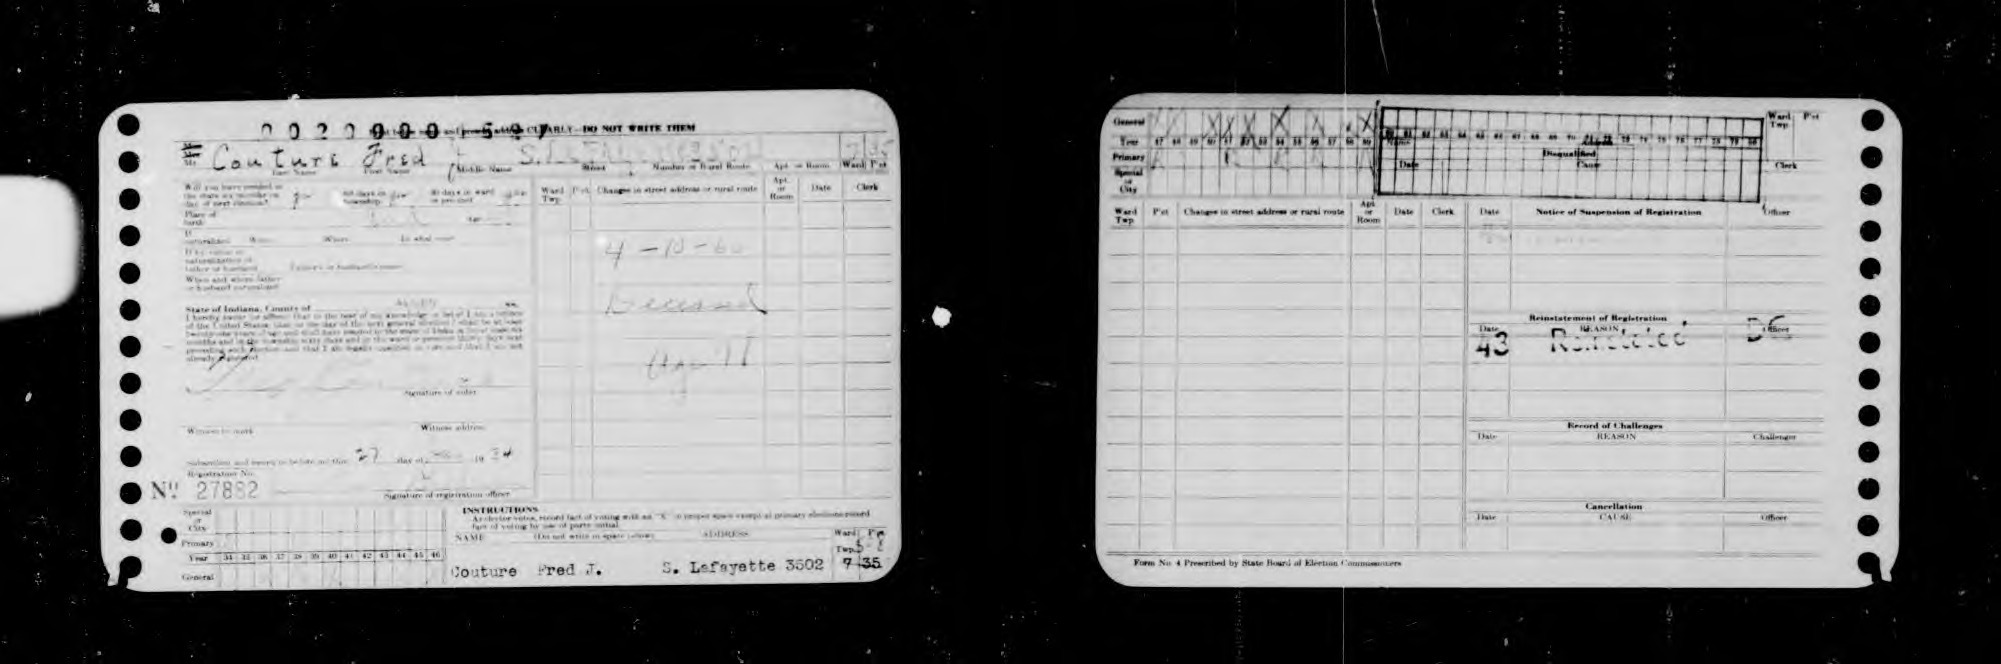 CLEARLY—DO NOT WRITE THEM
Couture Fred
Last Name First Name Middle Name Street Number or Rural Route Apt. or Room Ward Pct
Will you have resided in the state six months on day of next election? 60 days in township 30 days in ward or precinct
Place of birth
If naturalized When Where In what court
If by virtue of naturalization of father or husband Father's or husband's name
When and where father or husband naturalized
State of Indiana, County of ss.
I hereby swear (or affirm) that to the best of my knowledge and belief I am a citizen
of the United States; that on the day of the next general election I shall be at least
twenty-one years of age and shall have resided in the state of Indiana
months and in the township sixty days and in the ward or precinct thirty days next
preceding such election and that I am legally qualified to vote and that I am not
already registered.
Signature of voter
Witness to mark Witness address
Subscribed and sworn to before me this 27 day of 19 34
Registration No.
Nº 27882
Signature of registration officer
Ward Twp. Pct. Changes in street address or rural route Apt. or Room Date Clerk
4-13-60
Deceased
Special or City
Primary
Year 34 35 36 37 38 39 40 41 42 43 44 45 46
General
INSTRUCTIONS
As elector votes, record fact of voting with an "X" in proper space except at primary elections record
fact of voting by use of party initial.
NAME (Do not write in space below) ADDRESS Ward Twp. Pct
Couture Fred J. S. Lafayette 3502 7 35
General
Year 47 48 49 50 51 52 53 54 55 56 57 58 59
Primary
Special or City
Name
Disqualified
Date Cause
Ward Twp. Pct
Clerk
Ward Twp. Pct Changes in street address or rural route Apt. or Room Date Clerk
Date Notice of Suspension of Registration Officer
Reinstatement of Registration
Date REASON Officer
43 Reinstated
Record of Challenges
Date REASON Challenger
Cancellation
Date CAUSE Officer
Form No. 4 Prescribed by State Board of Election Commissioners